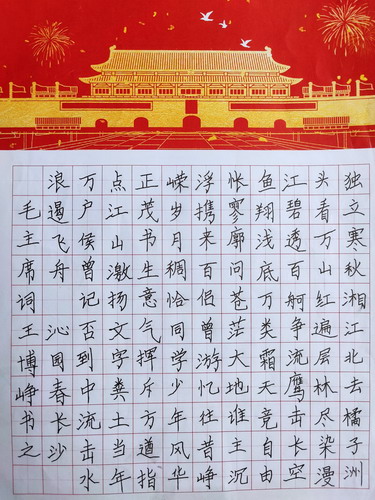 独立寒秋湘江北去橘子洲
头看万山红遍层林尽染漫
江碧透百舸争流鹰击长空
鱼翔浅底万类霜天竞自由
怅寥廓问苍茫大地谁主沉
浮携来百侣曾游忆往昔峥
嵘岁月稠恰同学少年风华
正茂书生意气挥斥方遒指
点江山激扬文字粪土当年
万户侯曾记否到中流击水
浪遏飞舟 沁园春长沙
毛主席词王博峥书之